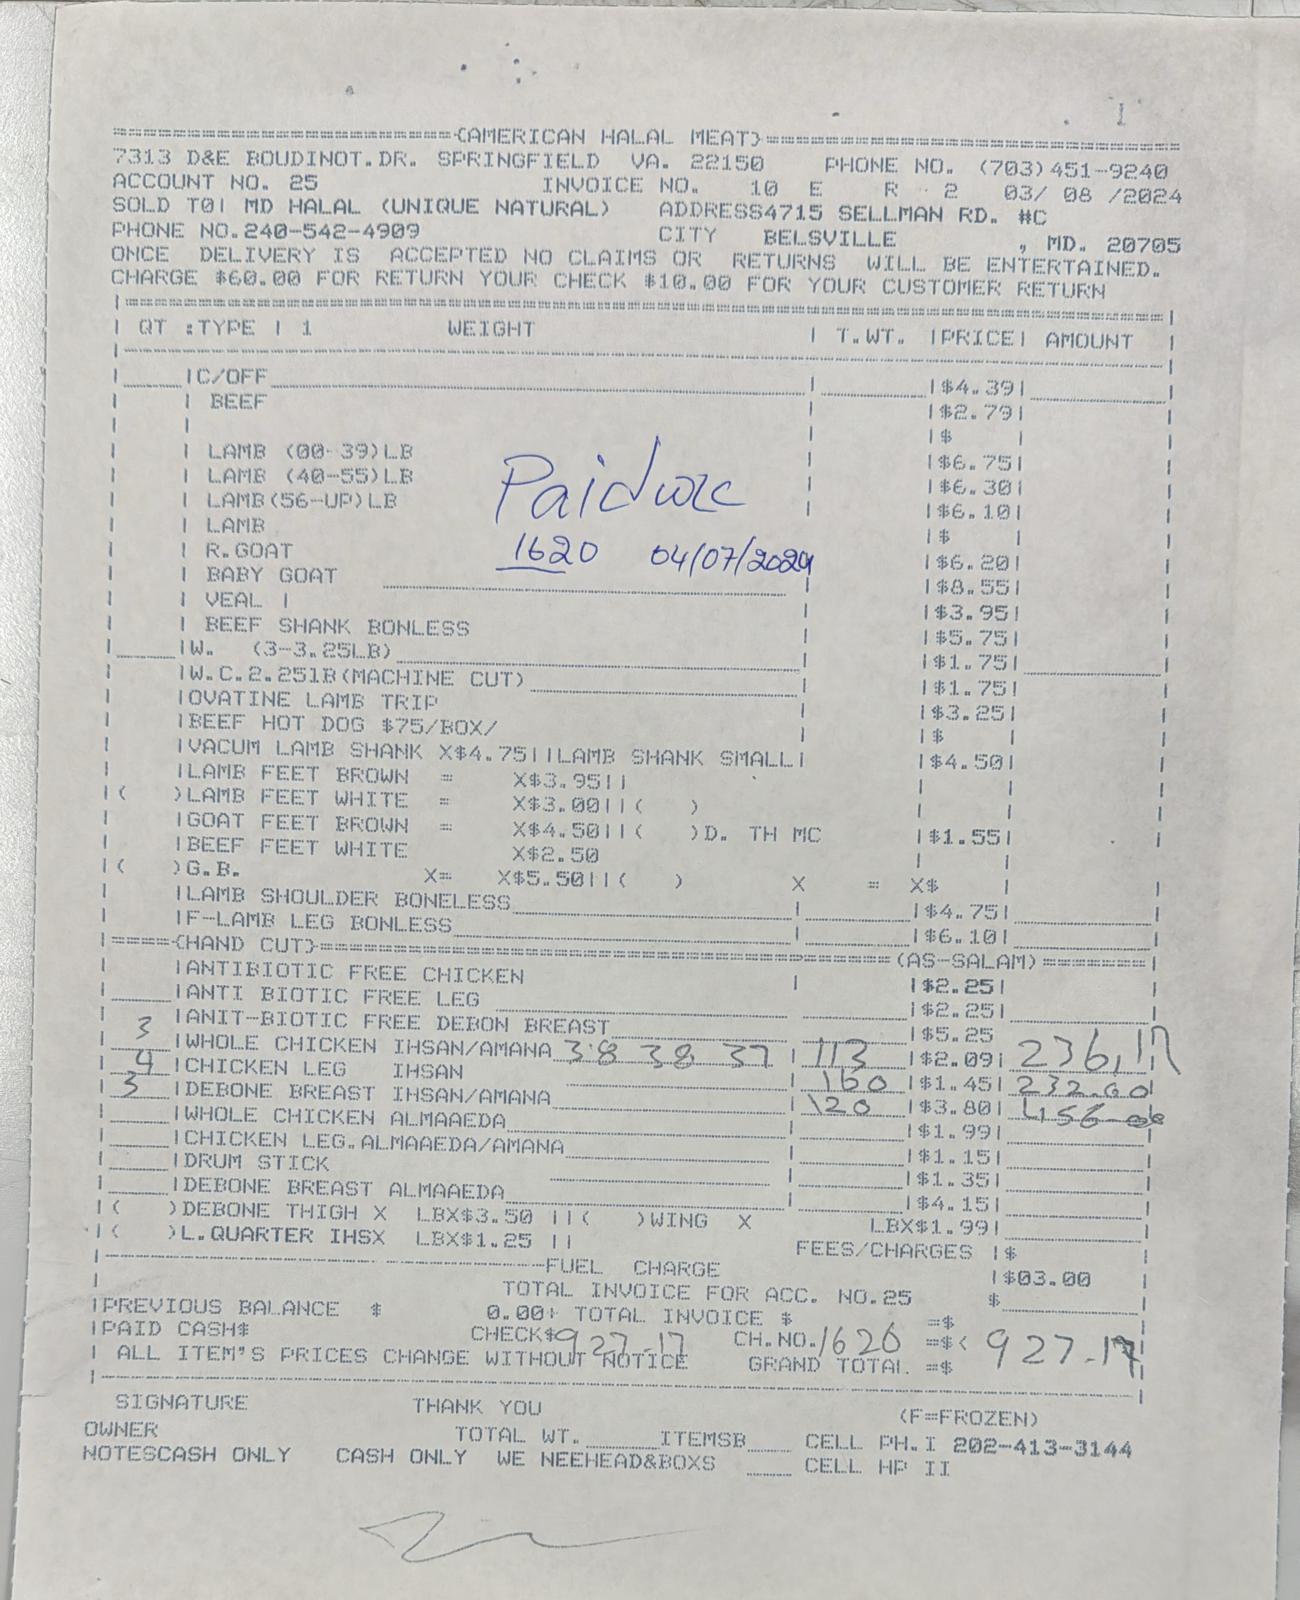 {AMERICAN HALAL MEAT}
7313 D&E BOUDINOT.DR. SPRINGFIELD VA. 22150 PHONE NO. (703)451-9240
ACCOUNT NO. 25 INVOICE NO. 10 E R 2 03/ 08 /2024
SOLD TO| MD HALAL (UNIQUE NATURAL) ADDRESS4715 SELLMAN RD. #C
PHONE NO.240-542-4909 CITY BELSVILLE , MD. 20705
ONCE DELIVERY IS ACCEPTED NO CLAIMS OR RETURNS WILL BE ENTERTAINED.
CHARGE $60.00 FOR RETURN YOUR CHECK $10.00 FOR YOUR CUSTOMER RETURN
| QT :TYPE | 1 WEIGHT | T.WT. |PRICE| AMOUNT
|C/OFF |$4.39|
| BEEF |$2.79|
|$ |
| LAMB (00-39)LB |$6.75|
| LAMB (40-55)LB |$6.30|
| LAMB(56-UP)LB |$6.10|
| LAMB |$ |
| R.GOAT |$6.20|
| BABY GOAT |$8.55|
| VEAL | |$3.95|
| BEEF SHANK BONLESS |$5.75|
Paid
1620 04/07/2024
|W. (3-3.25LB) |$1.75|
|W.C.2.251B(MACHINE CUT) |$1.75|
|OVATINE LAMB TRIP |$3.25|
|BEEF HOT DOG $75/BOX/ |$ |
|VACUM LAMB SHANK X$4.75||LAMB SHANK SMALL| |$4.50|
|LAMB FEET BROWN = X$3.95||
|( )LAMB FEET WHITE = X$3.00||( )
|GOAT FEET BROWN = X$4.50||( )D. TH MC |$1.55|
|BEEF FEET WHITE X$2.50
|( )G.B. X= X$5.50||( ) X = X$
|LAMB SHOULDER BONELESS |$4.75|
|F-LAMB LEG BONLESS |$6.10|
{HAND CUT} (AS-SALAM)
|ANTIBIOTIC FREE CHICKEN |$2.25|
|ANTI BIOTIC FREE LEG |$2.25|
|ANIT-BIOTIC FREE DEBON BREAST |$5.25
3 |WHOLE CHICKEN IHSAN/AMANA 38 38 37 | 113 |$2.09| 236,17
4 |CHICKEN LEG IHSAN 160 |$1.45| 232.00
3 |DEBONE BREAST IHSAN/AMANA | 120 |$3.80| 456-00
|WHOLE CHICKEN ALMAAEDA |$1.99|
|CHICKEN LEG.ALMAAEDA/AMANA |$1.15|
|DRUM STICK |$1.35|
|DEBONE BREAST ALMAAEDA |$4.15|
|( )DEBONE THIGH X LBX$3.50 ||( )WING X LBX$1.99|
|( )L.QUARTER IHSX LBX$1.25 || FEES/CHARGES |$
FUEL CHARGE |$03.00
TOTAL INVOICE FOR ACC. NO.25 $
|PREVIOUS BALANCE $ 0.00+ TOTAL INVOICE $ =$
|PAID CASH$ CHECK$927-17 CH.NO.1620 =$< 927.17
| ALL ITEM'S PRICES CHANGE WITHOUT NOTICE GRAND TOTAL =$
SIGNATURE THANK YOU (F=FROZEN)
OWNER TOTAL WT. ITEMSB CELL PH.I 202-413-3144
NOTESCASH ONLY CASH ONLY WE NEEHEAD&BOXS CELL HP II